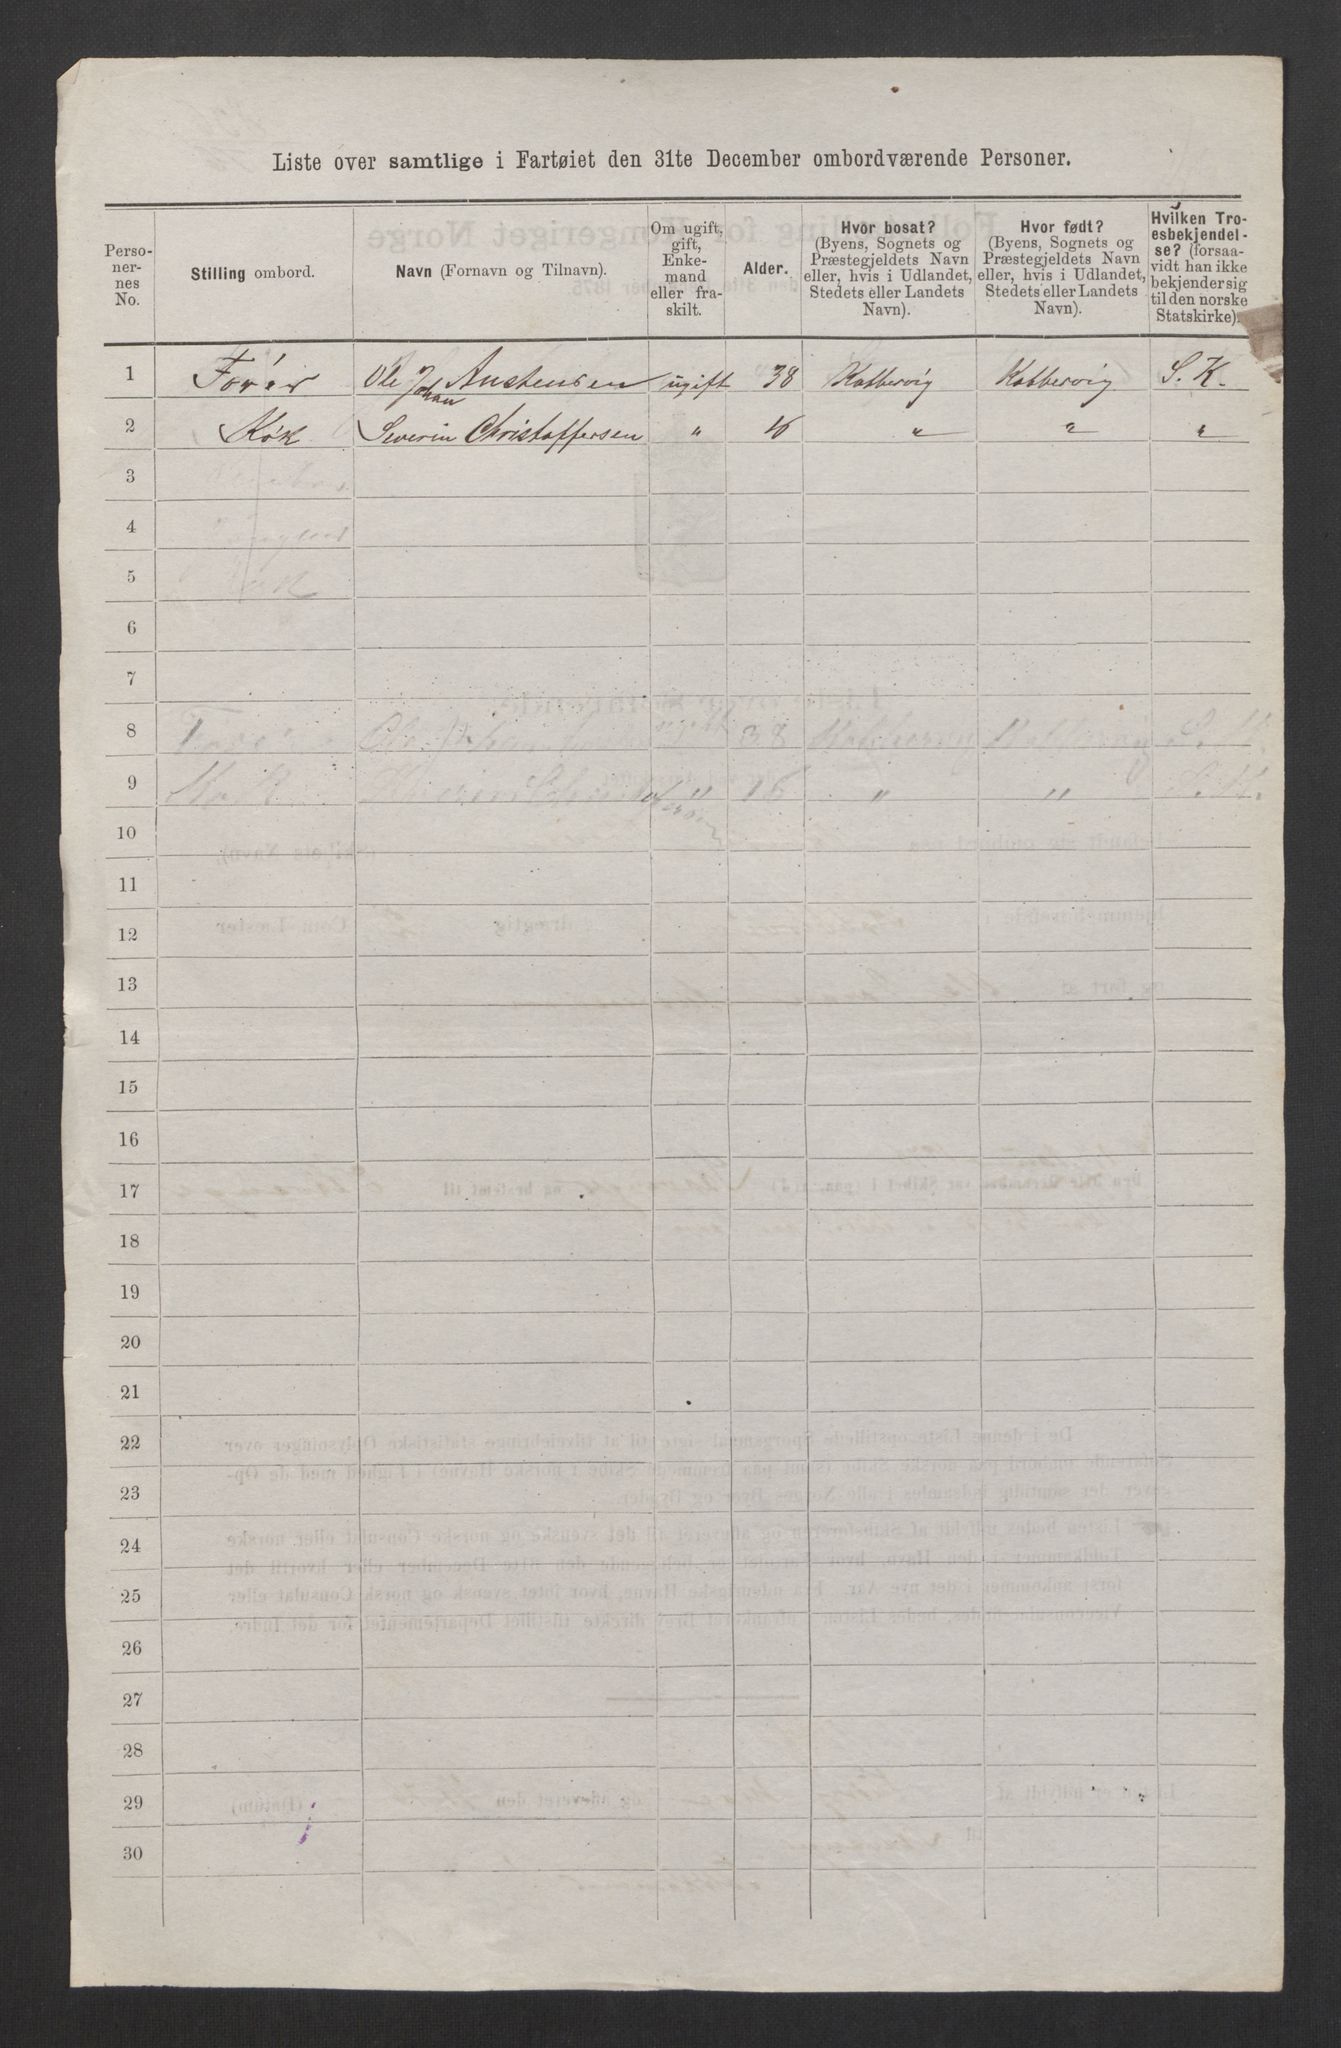 Liste over samtlige i Fartøiet den 31te December ombordværende Personer.
Perso-
ner-
nes
No.
Stilling ombord.
Navn (Fornavn og Tilnavn).
Om ugift,
gift,
Enke-
mand
eller fra-
skilt.
Alder.
Hvor bosat?
(Byens, Sognets og
Præstegjeldets Navn
eller, hvis i Udlandet,
Stedets eller Landets
Navn).
Hvor født?
(Byens, Sognets og
Præstegjeldets Navn
eller, hvis i Udlandet,
Stedets eller Landets
Navn).
Hvilken Tro-
esbekjendel-
se? (forsaa-
vidt han ikke
bekjender sig
til den norske
Statskirke).
1 Fører Ole Johan Austensen ugift 38 Kobbervig Kobbervig S. K.
2 Kok Severin Christoffersen " 16 " " "
3
4
5 Kok
6
7
8 Fører Ole Johan ugift 38 Kobbervig Kobbervig S. K.
9 Kok " 16 " " S. K.
10
11
12
13
14
15
16
17
18
19
20
21
22
23
24
25
26
27
28
29
30